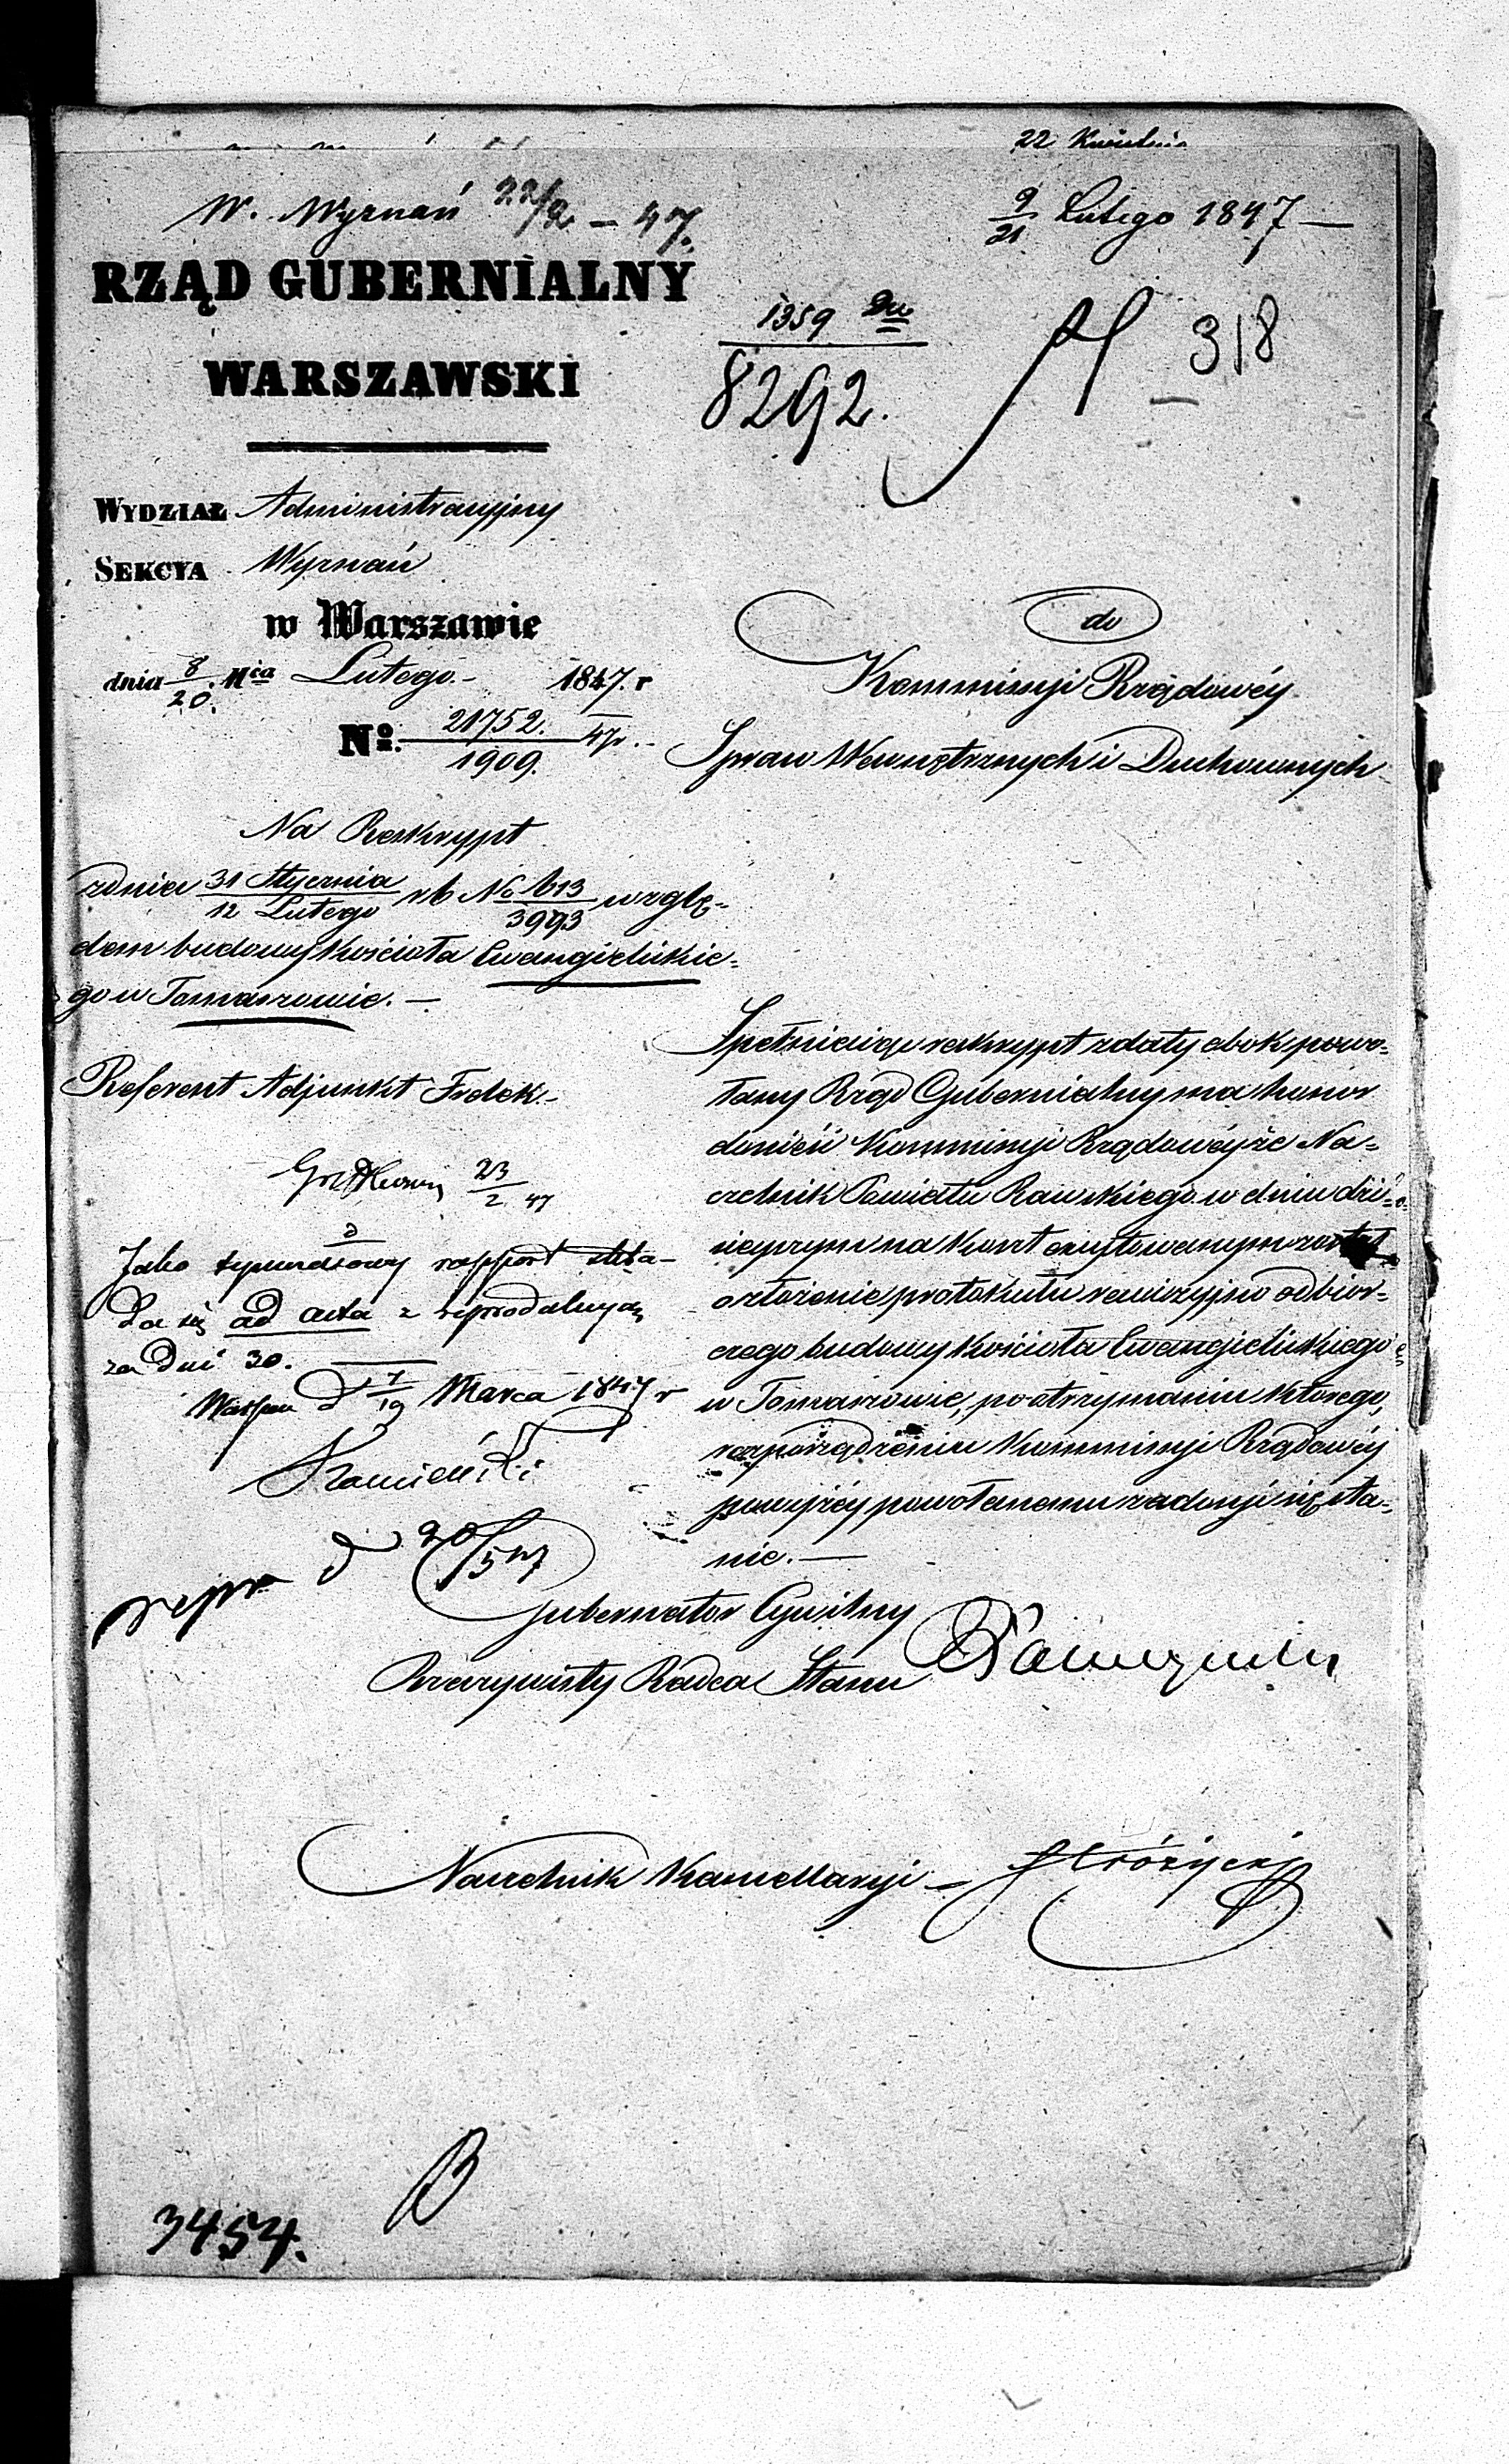 22 Kwietnia
W. Wyznań 22/2 – 47.
9/21 Lutego 1847 —
RZĄD GUBERNIALNY
WARSZAWSKI
1359
8292.
318
WYDZIAŁ Administracyjny
SEKCYA Wyznań
w Warszawie
dnia 8/20. Mca Lutego 1847. r
No. 21752./1909. 47r.
do
Kommissyi Rządowéy
Spraw Wewnętrznych i Duchownych
Na Reskrypt
z dnia 31 Stycznia/12 Lutego r b No 613/3993 wzglę-
dem budowy Kościoła Ewangielickie-
go w Tomaszowie. —
Referent Adjunkt Fredek.
23/2 47
Jako tymczasowy rapport skła-
da się ad acta z reprodukcyą
za Dni 30. —
d 7/19 Marca 1847 r
Kamieński
repr d 20/5 47
Spełniaiąc reskrypt z daty obok powo-
łany Rząd Gubernialny ma honor
donieść Kommissyi Rządowéy że Na-
czelnik Powiatu Rawskiego w dniu dzi-
sieyszym na koszt exzytowanym został
o złożenie protokułu rewizyjno odbior-
czego budowy Kościoła Ewangielickiego
w Tomaszowie, po otrzymaniu którego,
rozporządzeniu Kommissyi Rządowéy
powyżéy powołanemu zadosyć się sta-
nie. —
Gubernator Cywilny
Rzeczywisty Radca Stanu
Naczelnik Kancellaryi Stróżycki
3454.